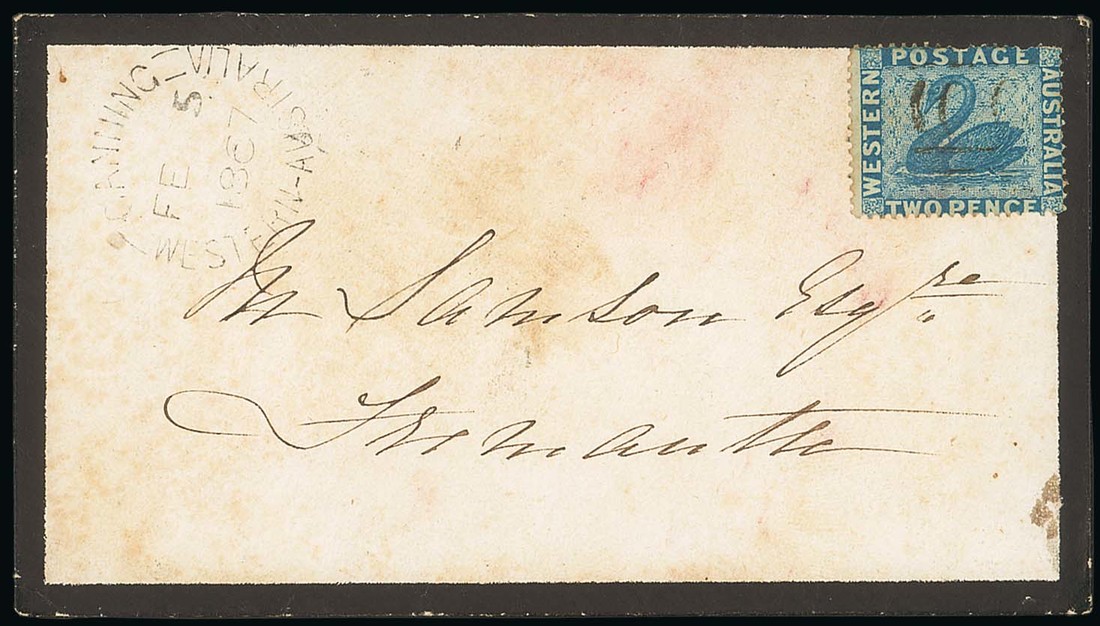 CANNING
FE 5
1867
WESTERN-AUSTRALIA
POSTAGE
WESTERN
AUSTRALIA
TWO PENCE
Samson Esqre
Fremantle